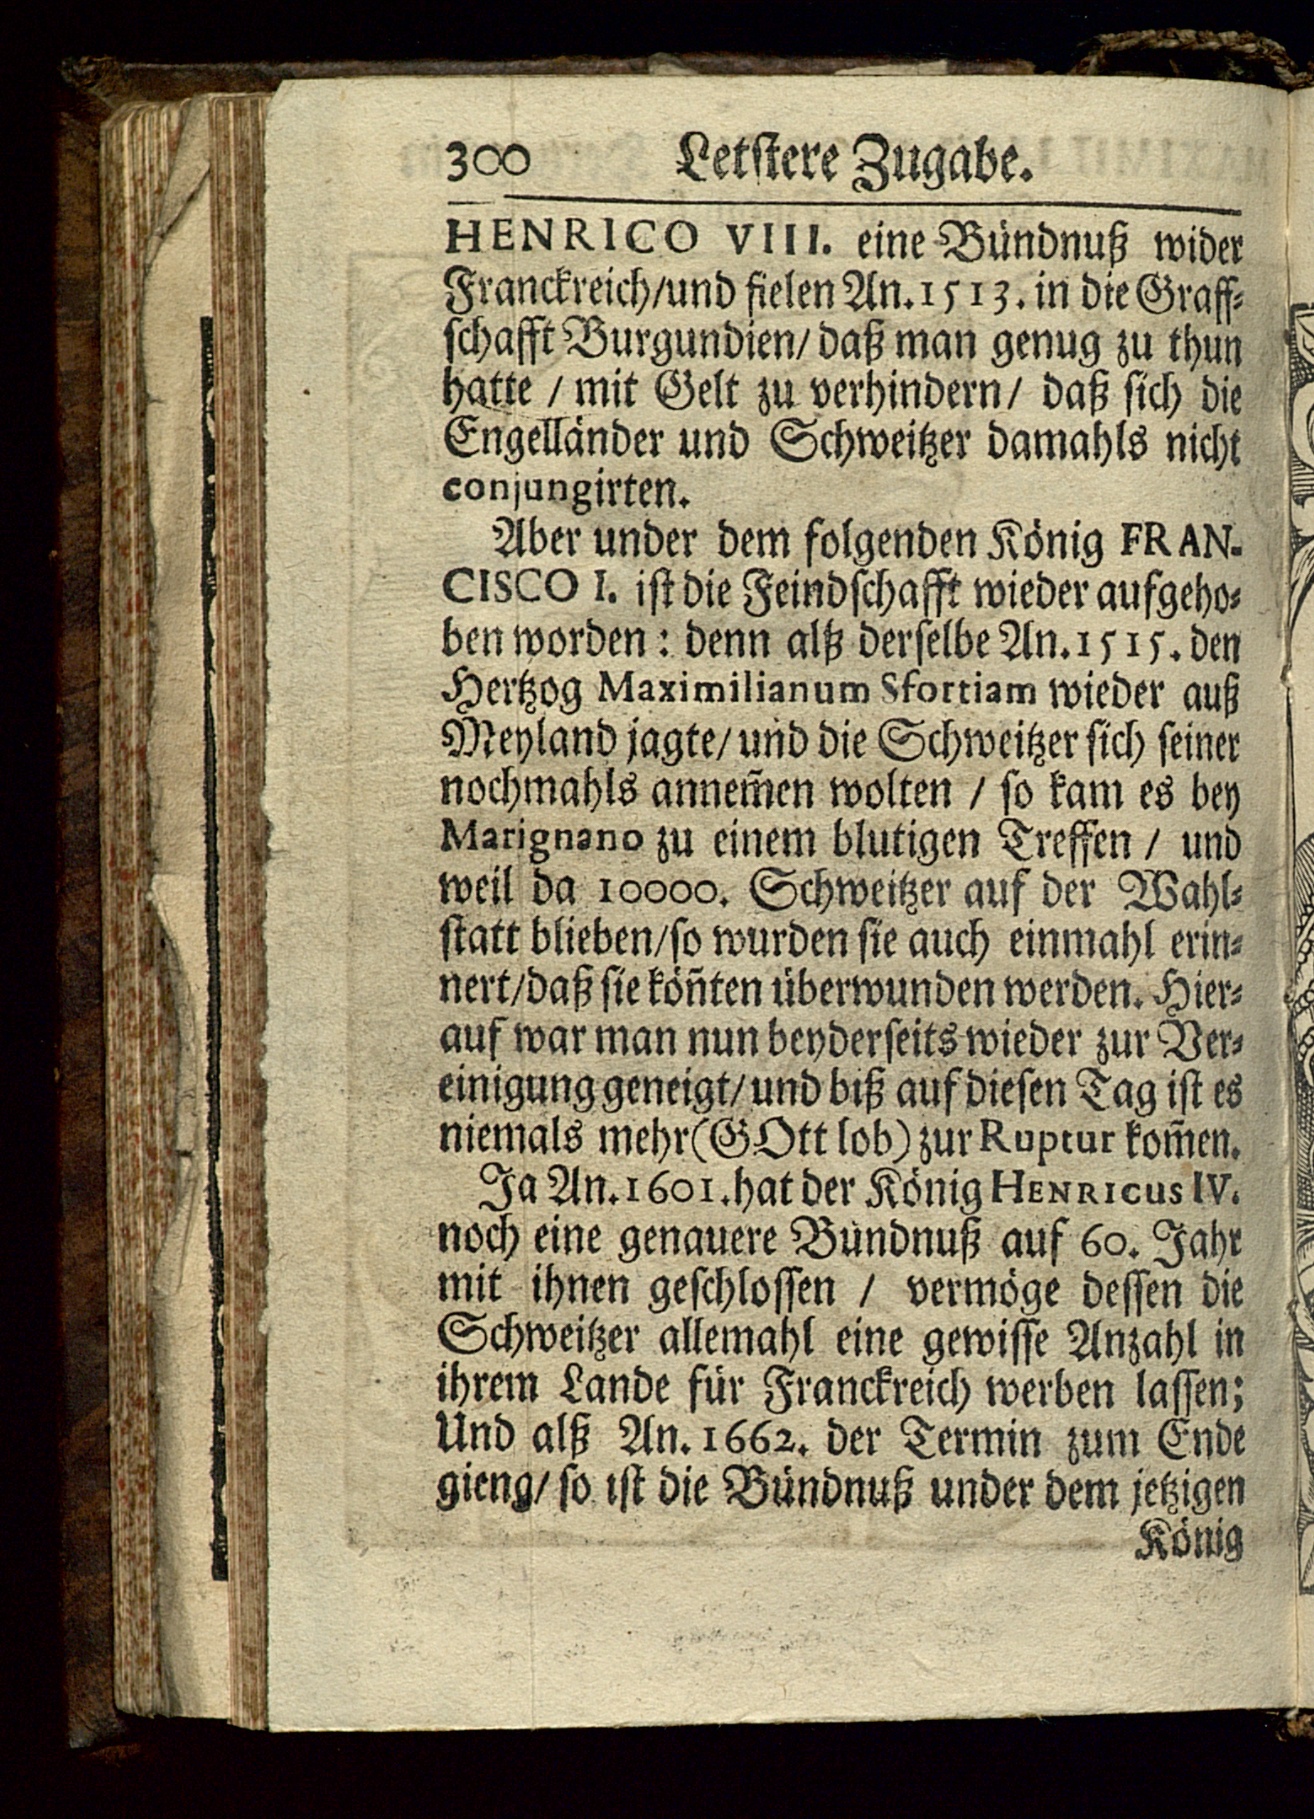 300 Letstere Zugabe.
HENRICO VIII. eine Bündnuß wider
Franckreich/und fielen An. 1513. in die Graff-
schafft Burgundien/ daß man genug zu thun
hatte / mit Gelt zu verhindern/ daß sich die
Engelländer und Schweitzer damahls nicht
conjungirten.
Aber under dem folgenden König FRAN-
CISCO I. ist die Feindschafft wieder aufgeho-
ben worden: denn alß derselbe An. 1515. den
Hertzog Maximilianum Sfortiam wieder auß
Meyland jagte/ und die Schweitzer sich seiner
nochmahls annem̃en wolten / so kam es bey
Marignano zu einem blutigen Treffen / und
weil da 10000. Schweitzer auf der Wahl-
statt blieben/so wurden sie auch einmahl erin-
nert/daß sie köñten überwunden werden. Hier-
auf war man nun beyderseits wieder zur Ver-
einigung geneigt/ und biß auf diesen Tag ist es
niemals mehr (GOtt lob) zur Ruptur kom̃en.
Ja An. 1601. hat der König HENRICUS IV.
noch eine genauere Bündnuß auf 60. Jahr
mit ihnen geschlossen / vermöge dessen die
Schweitzer allemahl eine gewisse Anzahl in
ihrem Lande für Franckreich werben lassen;
Und alß An. 1662. der Termin zum Ende
gieng/ so ist die Bündnuß under dem jetzigen
König